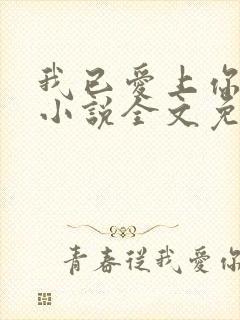 我已愛上你
小說全文免
青春從我愛你